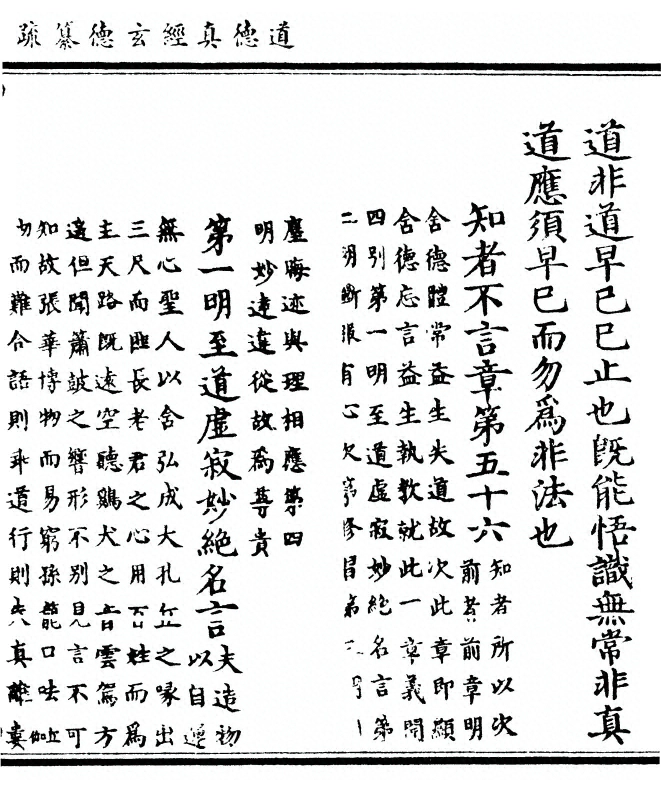 道德真經玄德纂疏
道非道早已已止也既能悟識無常非真
道應須早已而勿爲非法也
知者不言章第五十六
知者所以次
前者前章明
舍德體常益生失道故次此章即顯
舍德忘言益生執教就此一章義開
四别第一明至道虛寂妙絶名言第
二明斷有心次第修習第三
塵晦迹與理相應第四
明妙達違從故爲尊貴
第一明至道虛寂妙絶名言
夫造物
以自遵
無心聖人以舍弘成大孔丘之喙出
三尺而匪長老君之心用百姓而爲
主天路既遠空聽鷄犬之音雲駕方
遠但聞簫鼓之響形不別見言不可
知故張華博物而易窮孫龍口呿
而難合語則乖道行則失真離婁